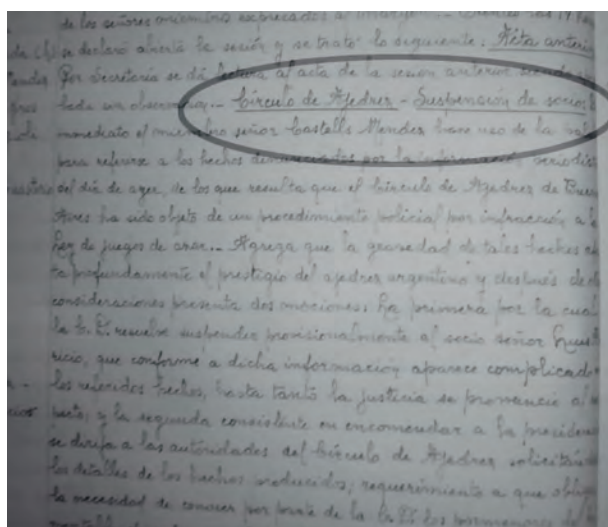 de los señores miembros expresados al margen
se declaró abierta la sesión y se trató lo siguiente: Acta anterio
Por Secretaría se dá lectura al acta de la sesión anterior siendo
bada sin observación.- Círculo de Ajedrez - Suspensión de socios
inmediato el miembro señor Castells Mendez hace uso de la pala
para referirse a los hechos denunciados por la información periodís
del día de ayer, de los que resulta que el Círculo de Ajedrez de Buen
Aires ha sido objeto de un procedimiento policial por infracción a la
Ley de juegos de azar.. Agrega que la gravedad de tales hechos
ta profundamente el prestigio del ajedrez argentino y después de
consideraciones presenta dos mociones: La primera por la cual
la C.D. resuelve suspender provisionalmente al socio señor Luis
ricio, que conforme a dicha información aparece complicado
los referidos hechos, hasta tanto la justicia se pronuncie al
pecto; y la segunda consistente en encomendar a la presiden
se dirija a las autoridades del Círculo de Ajedrez solicitán
los detalles de los hechos producidos; requerimiento a que obliga
la necesidad de conocer por parte de la C.D. los pormenores de